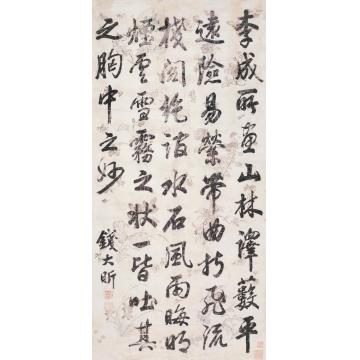 李成所畫山林澤藪平
遠險易縈帶曲折飛流
棧閣絶澗水石風雨晦明
煙雲雪霧之狀一皆吐其
之胸中之妙
錢大昕